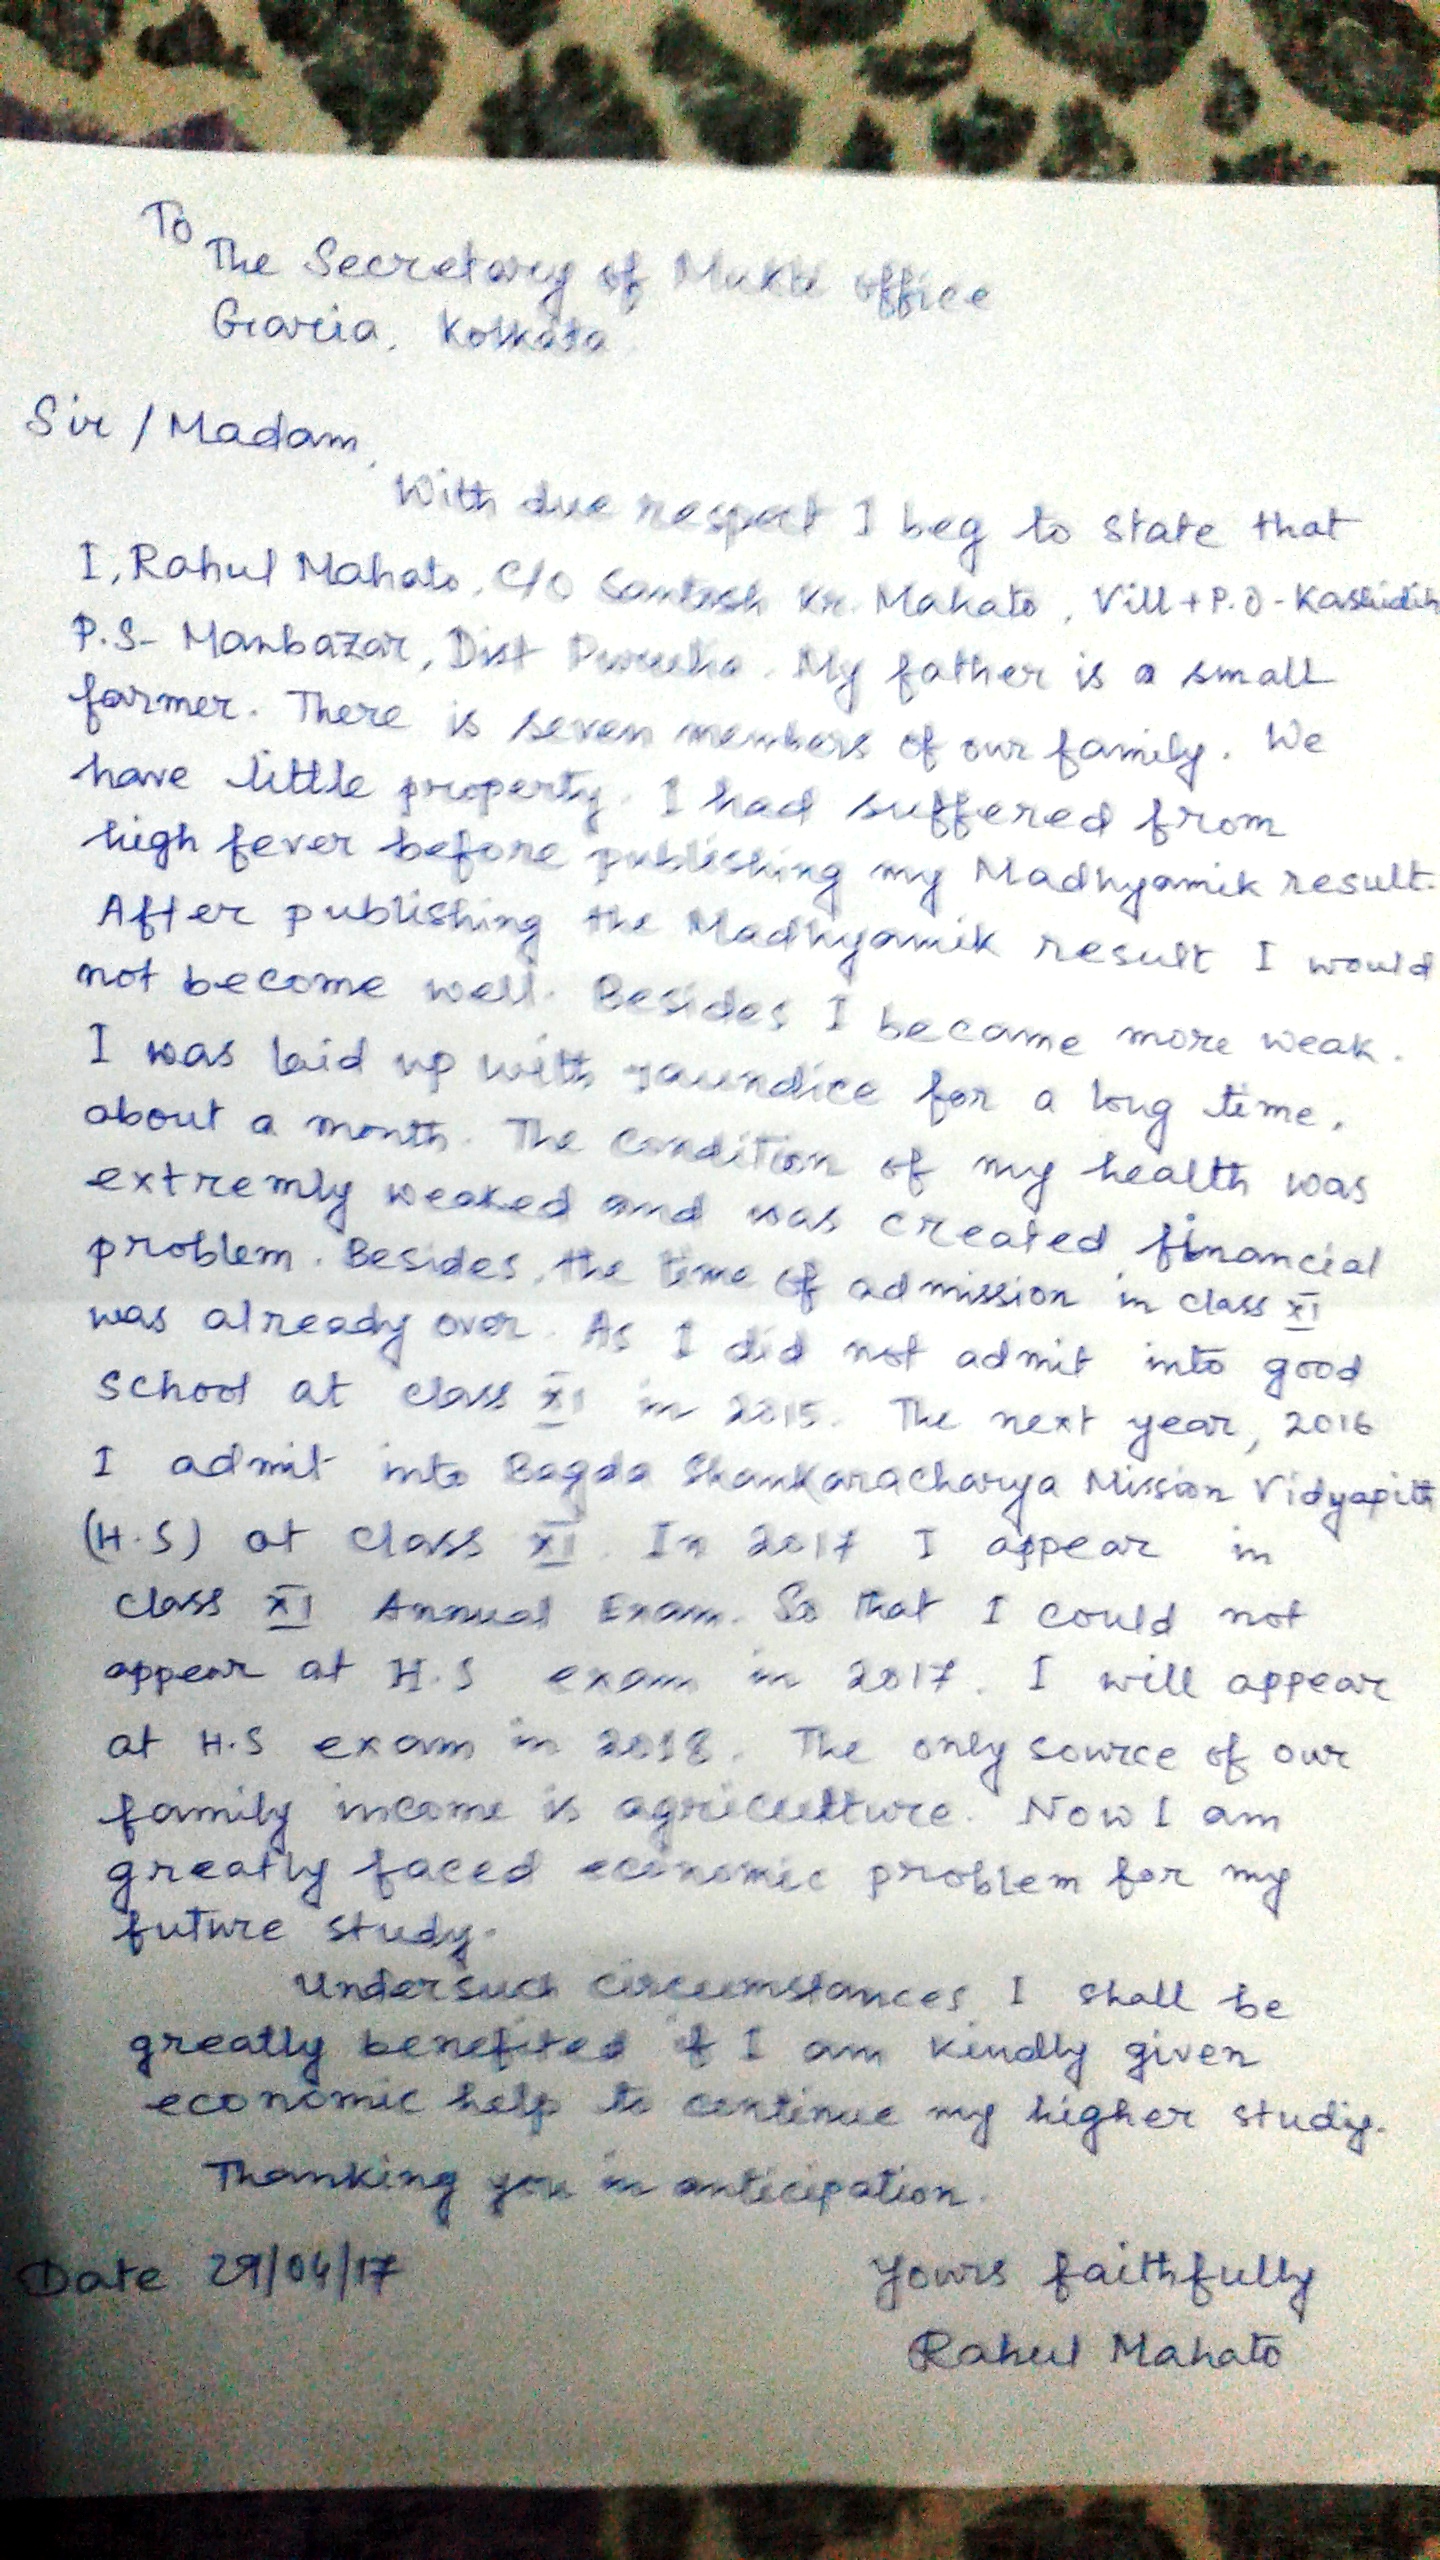 To
The Secretary of Mukti office
Garia, Kolkata
Sir / Madam,
With due respect I beg to state that
I, Rahul Mahato, C/O Santosh Kr. Mahato, Vill + P.O - Kashidih
P.S- Manbazar, Dist Purulia. My father is a small
farmer. There is seven members of our family. We
have little property. I had suffered from
high fever before publishing my Madhyamik result.
After publishing the Madhyamik result I would
not become well. Besides I became more weak.
I was laid up with jaundice for a long time,
about a month. The condition of my health was
extremly weaked and was created financial
problem. Besides, the time of admission in class XI
was already over. As I did not admit into good
school at class XI in 2015. The next year, 2016
I admit into Bagda Shankaracharya Mission Vidyapith
(H.S) at class XI. In 2017 I appear in
class XI Annual Exam. So that I could not
appear at H.S exam in 2017. I will appear
at H.S exam in 2018. The only source of our
family income is agriculture. Now I am
greatly faced economic problem for my
future study.
Under such circumstances I shall be
greatly benefited if I am kindly given
economic help to continue my higher study.
Thanking you in anticipation.
Date 29/04/17
Yours faithfully
Rahul Mahato